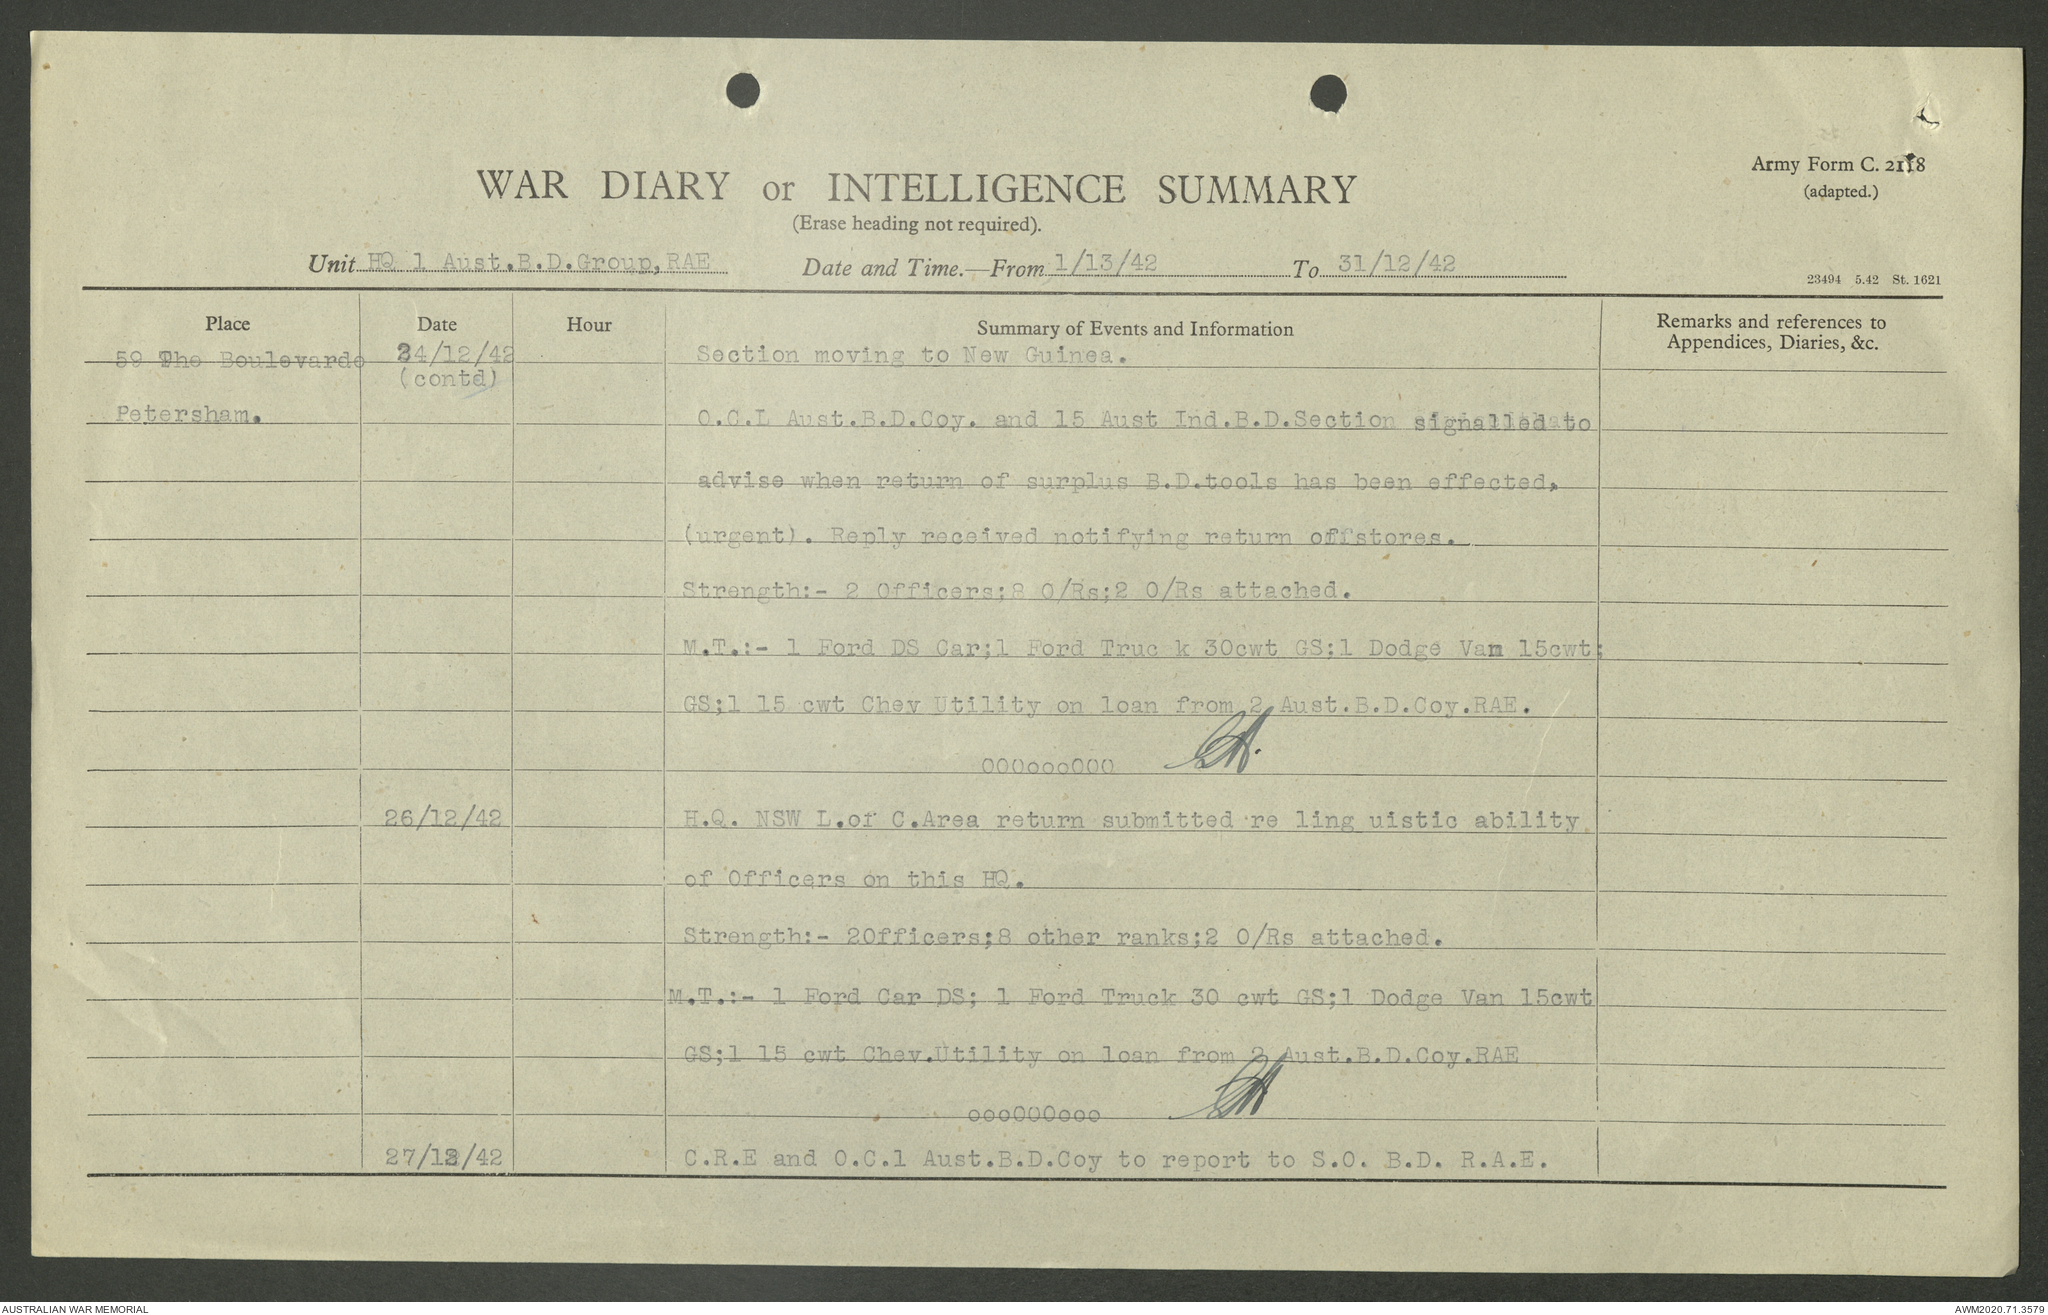 Army Form C. 2118
(adapted.)
WAR DIARY or INTELLIGENCE SUMMARY
(Erase heading not required).
Unit HQ 1 Aust.B.D.Group,RAE Date and Time.—From 1/13/42 To 31/12/42
23494 5.42 St. 1621
Place Date Hour Summary of Events and Information Remarks and references to
Appendices, Diaries, &c.
59 The Boulevarde 24/12/42 Section moving to New Guinea.
(contd)
Petersham. O.C.L Aust.B.D.Coy. and 15 Aust Ind.B.D.Section signalled to
advise when return of surplus B.D.tools has been effected,
(urgent). Reply received notifying return of stores.
Strength:- 2 Officers;8 O/Rs;2 O/Rs attached.
M.T.:- 1 Ford DS Car;1 Ford Truc k 30cwt GS;1 Dodge Van 15cwt;
GS;1 15 cwt Chev Utility on loan from 2 Aust.B.D.Coy.RAE.
OOOoooOOO
26/12/42 H.Q. NSW L.of C.Area return submitted re ling uistic ability
of Officers on this HQ.
Strength:- 2Officers;8 other ranks;2 O/Rs attached.
M.T.:- 1 Ford Car DS; 1 Ford Truck 30 cwt GS;1 Dodge Van 15cwt
GS;1 15 cwt Chev.Utility on loan from 2 Aust.B.D.Coy.RAE
oooOOOooo
27/12/42 C.R.E and O.C.1 Aust.B.D.Coy to report to S.O. B.D. R.A.E.
AUSTRALIAN WAR MEMORIAL AWM2020.71.3579